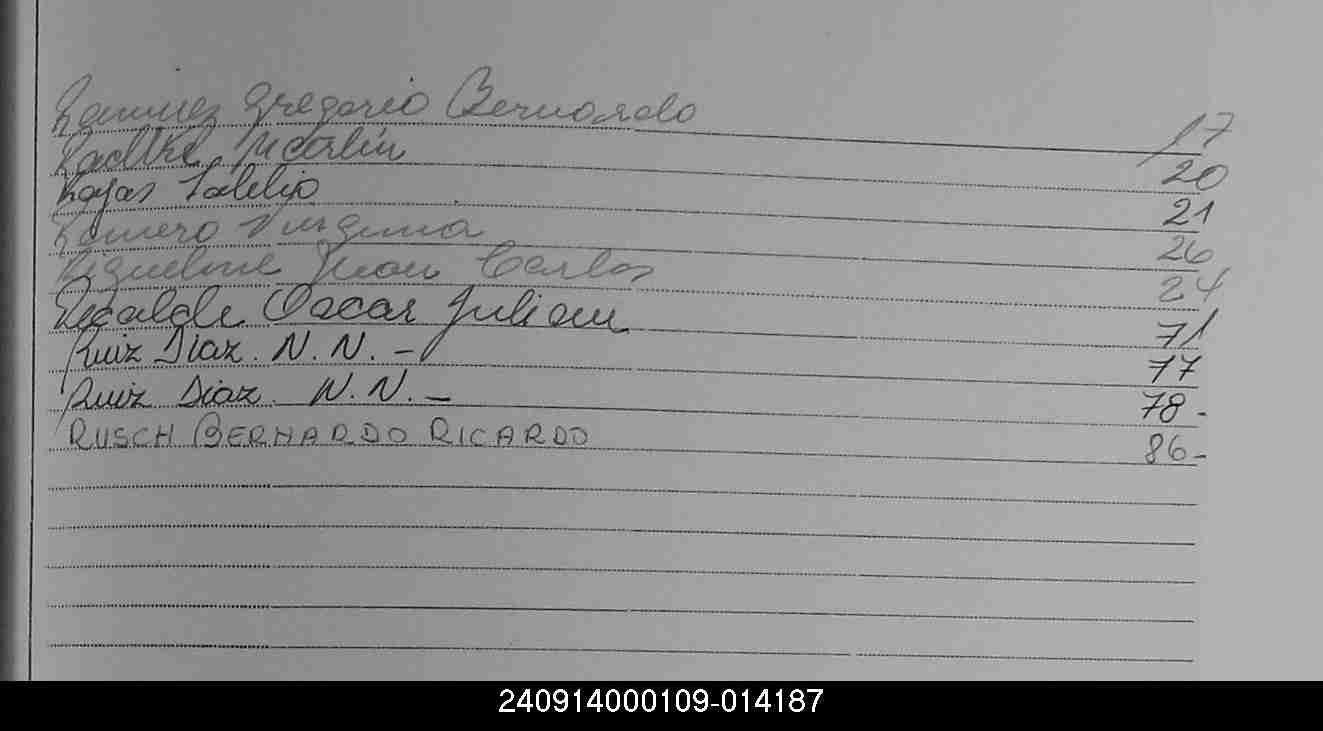 Ramirez Gregorio Bernardo 17
Radtke, Martin 20
Rojas 21
Romero Virginia 26
Riquelme Juan Carlos 24
Recalde Oscar Julian 71
Ruiz Diaz. N. N. - 77
Ruiz Diaz. N. N. - 78-
RUSCH BERNARDO RICARDO 86-
240914000109-014187